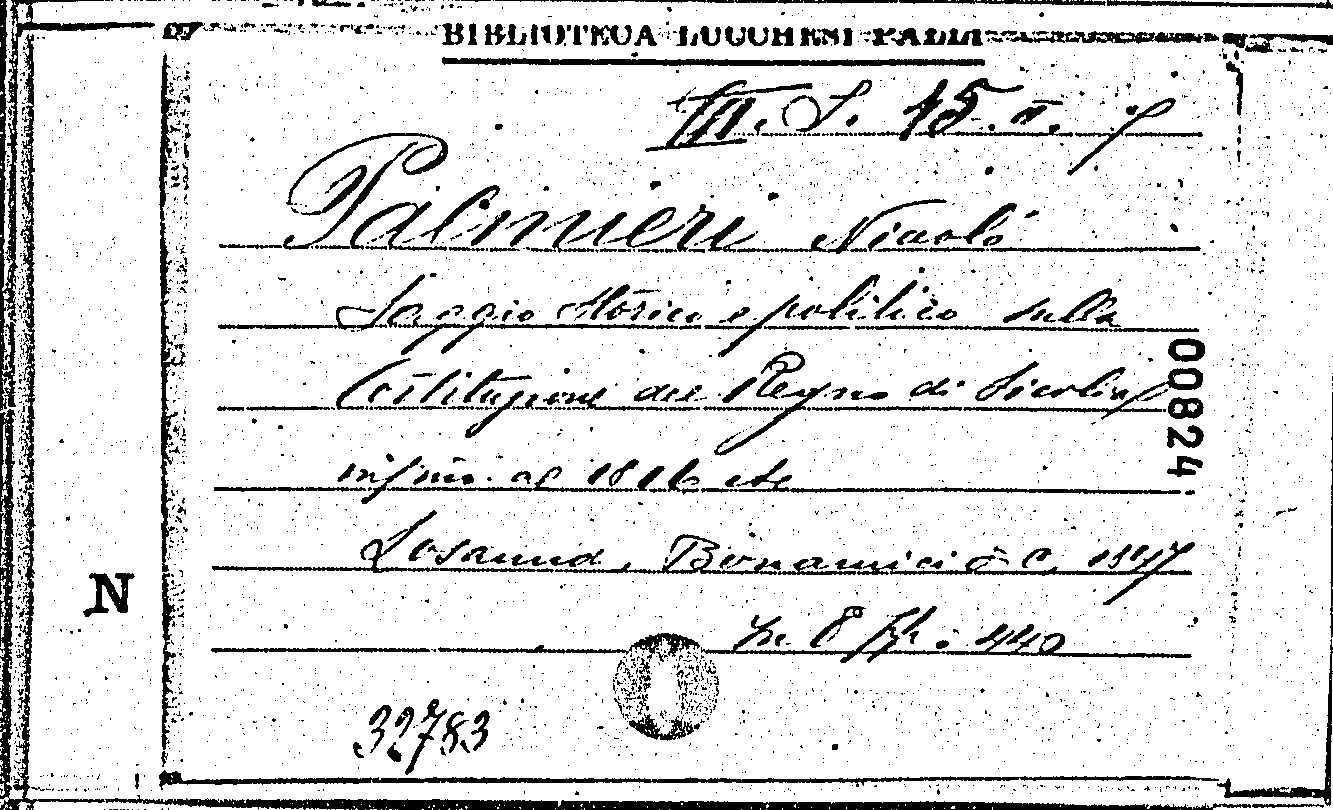 BIBLIOTECA LUCCHESI PALLI
III. S. 15. II. 7
Palmieri Nicolò
Saggio Storico e politico sulla
Costituzione del Regno di Sicilia
infino al 1816 etc
Losanna, Bonamici e C. 1847
In 8° pp. 440
00824
N
32783